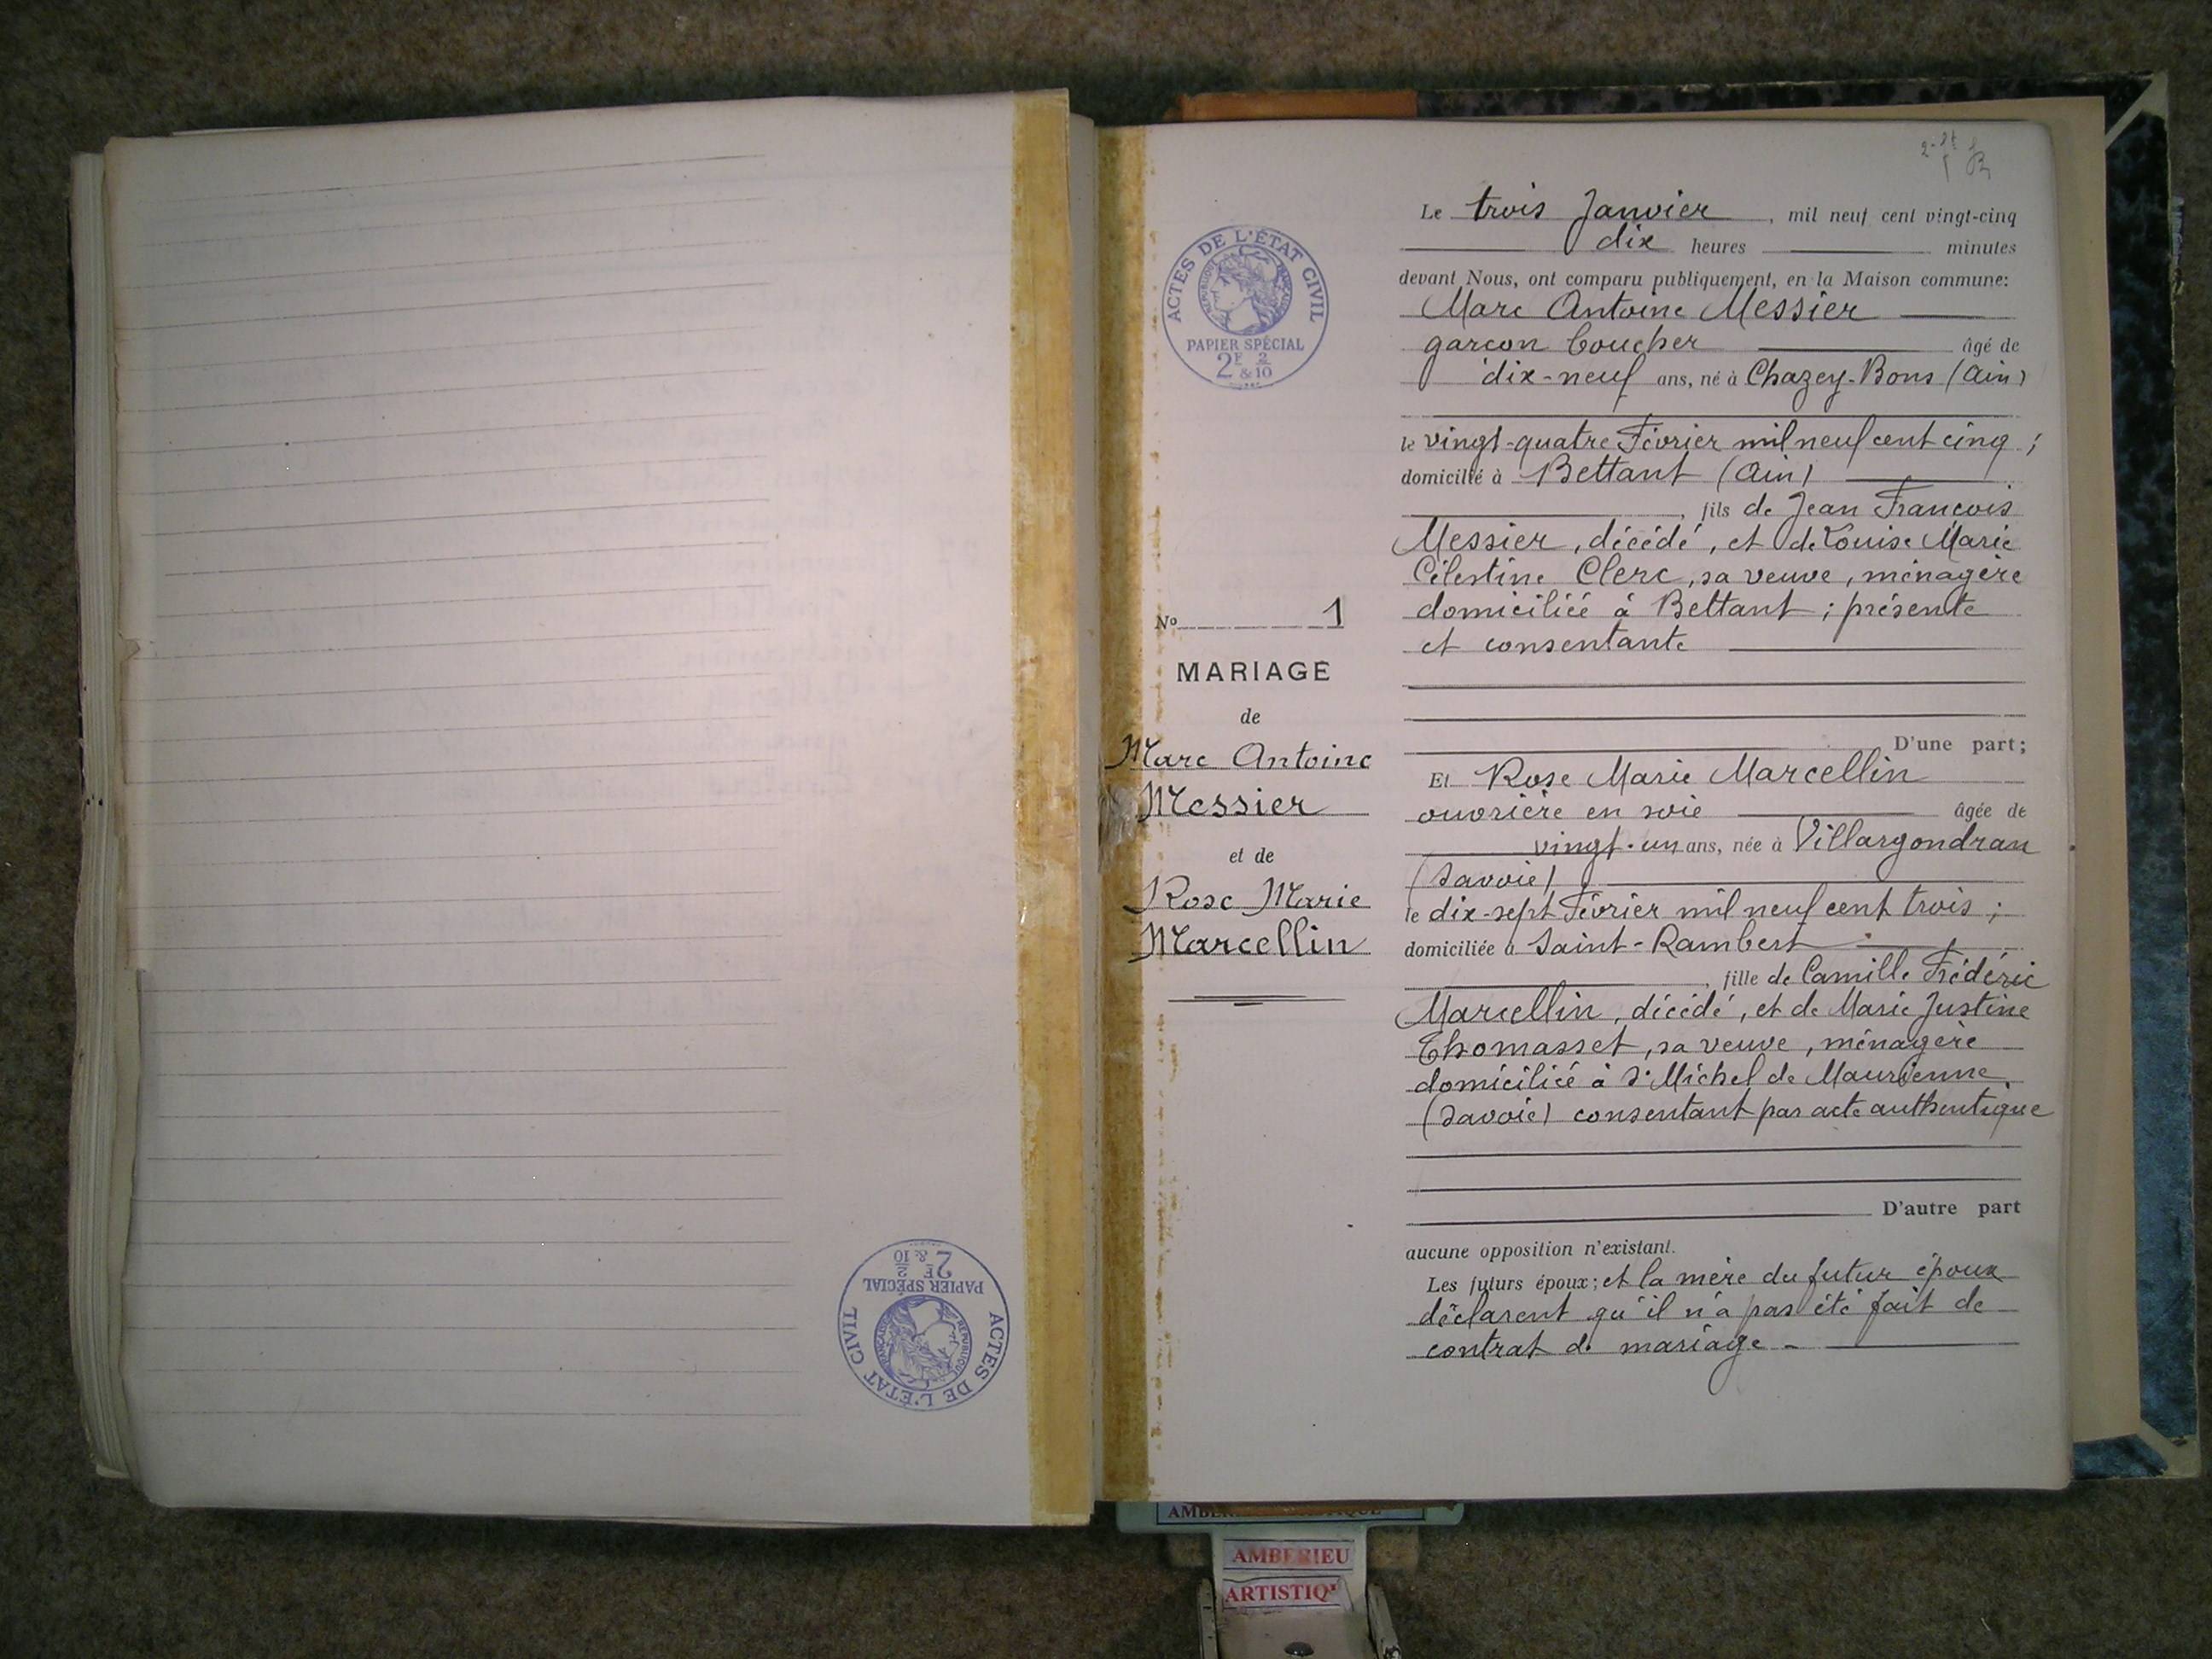 ACTES DE L'ÉTAT CIVIL
RÉPUBLIQUE FRANÇAISE
PAPIER SPÉCIAL
2F & 2/10
ACTES DE L'ÉTAT CIVIL
RÉPUBLIQUE FRANÇAISE
PAPIER SPÉCIAL
2F & 2/10
No 1
MARIAGE
de
Marc Antoine
Messier
et de
Rose Marie
Marcellin
Le trois Janvier, mil neuf cent vingt-cinq
dix heures minutes
devant Nous, ont comparu publiquement, en la Maison commune:
Marc Antoine Messier
garçon boucher âgé de
dix-neuf ans, né à Chazey-Bons (Ain)
le vingt-quatre Février mil neuf cent cinq;
domicilié à Bettant (Ain)
, fils de Jean François
Messier, décédé, et de Louise Marie
Célestine Clerc, sa veuve, ménagère
domiciliée à Bettant; présente
et consentante
D'une part;
Et Rose Marie Marcellin
ouvrière en soie âgée de
vingt-un ans, née à Villargondran
(Savoie)
le dix-sept Février mil neuf cent trois;
domiciliée à Saint-Rambert
, fille de Camille Frédéric
Marcellin, décédé, et de Marie Justine
Thomasset, sa veuve, ménagère
domiciliée à St Michel de Maurienne
(Savoie) consentant par acte authentique
D'autre part
aucune opposition n'existant.
Les futurs époux; et la mère du futur époux
déclarent qu'il n'a pas été fait de
contrat de mariage -
AMBERIEU
ARTISTIQ